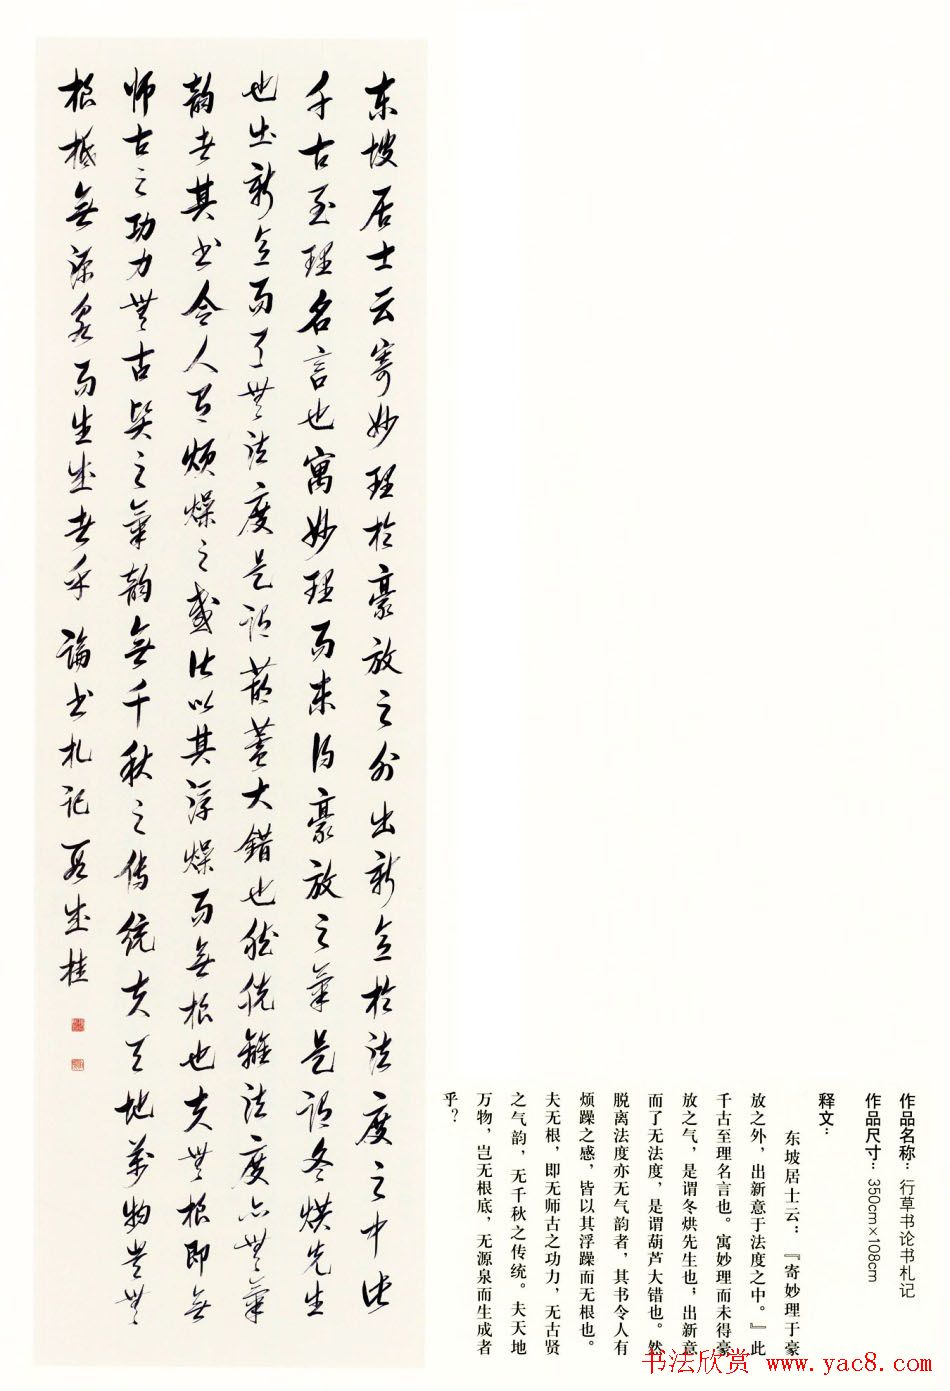 东坡居士云寄妙理於豪放之外出新意於法度之中此
千古至理名言也寓妙理而未得豪放之氣是谓冬烘先生
也出新意而了無法度是谓葫蘆大错也然脱離法度亦無氣
韵者其书令人有烦燥之感皆以其浮燥而無根也夫無根即無
师古之功力無古贤之氣韵無千秋之传统夫天地萬物岂無
根柢無源泉而生成者乎 論书札记 成桂
作品名称：行草书论书札记
作品尺寸：350cm×108cm
释文：
东坡居士云：『寄妙理于豪
放之外，出新意于法度之中。』此
千古至理名言也。寓妙理而未得豪
放之气，是谓冬烘先生也，出新意
而了无法度，是谓葫芦大错也。然
脱离法度亦无气韵者，其书令人有
烦躁之感，皆以其浮躁而无根也。
夫无根，即无师古之功力，无古贤
之气韵，无千秋之传统。夫天地
万物，岂无根底，无源泉而生成者
乎？
书法欣赏 www.yac8.com